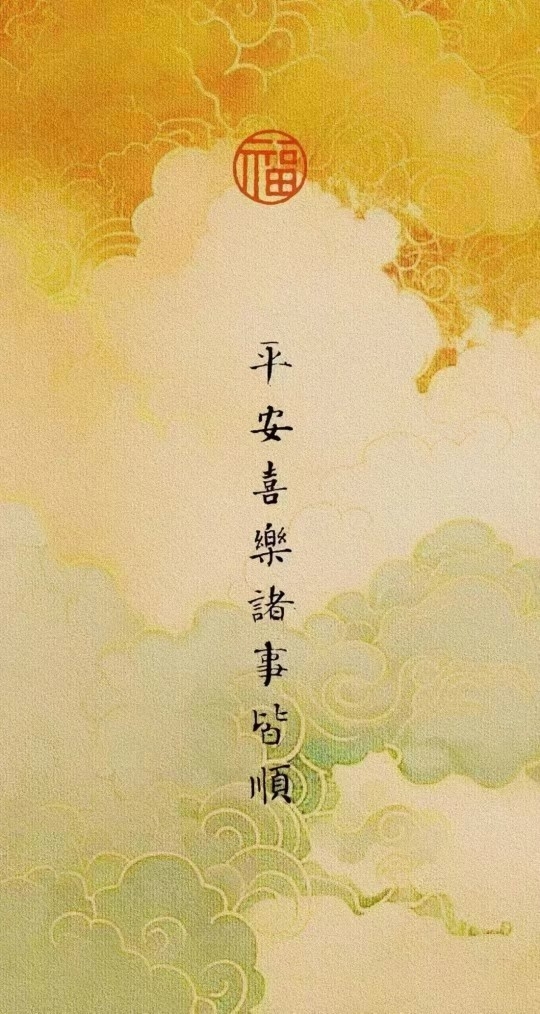 福
平安喜樂諸事皆順